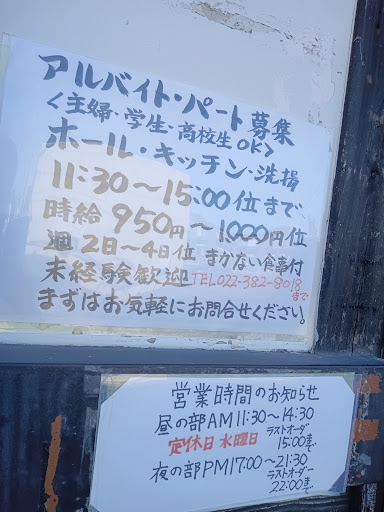 アルバイト・パート募集
<主婦・学生・高校生OK>
ホール・キッチン・洗場
11:30〜15:00位まで
時給 950円〜1000円位
週 2日〜4日位 まかない食事付
未経験歓迎 TEL022-382-8018まで
まずはお気軽にお問合せください。
営業時間のお知らせ
昼の部 AM11:30〜14:30
ラストオーダー
定休日 水曜日 15:00まで
夜の部 PM17:00〜21:30
ラストオーダー
22:00まで